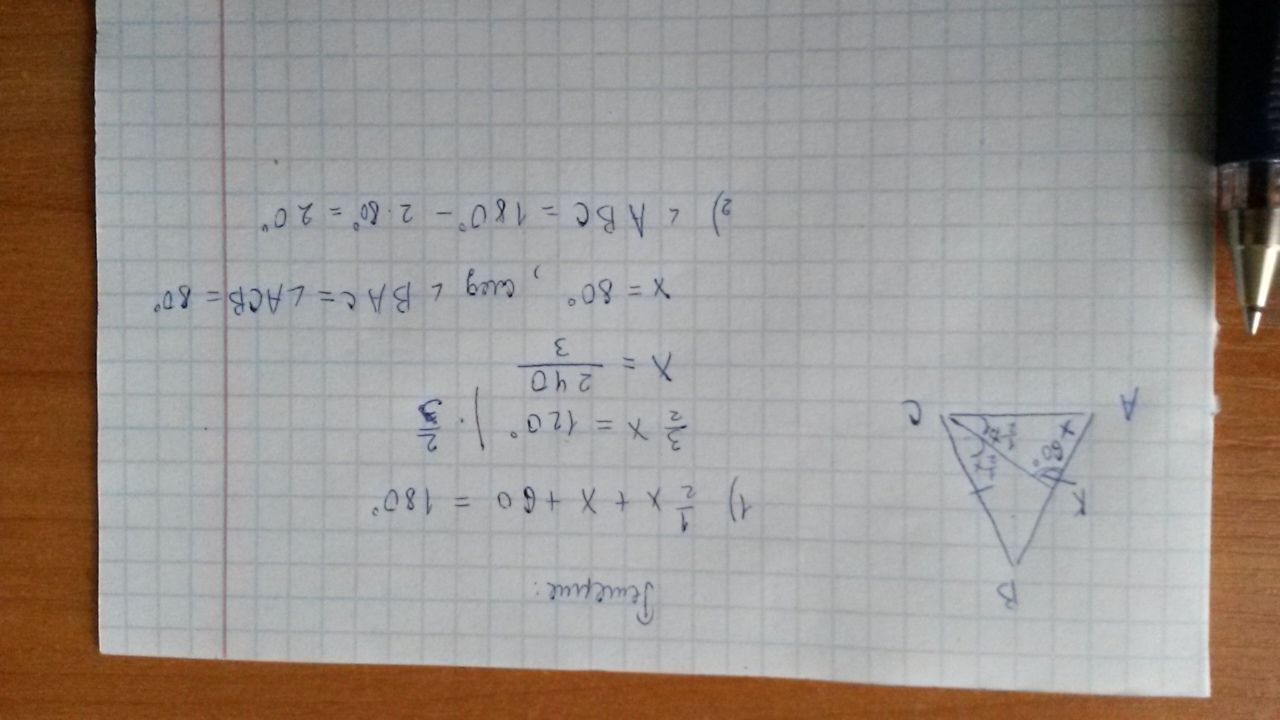 Решение:
B
K
60°
x
1/2 x
1/2 x
A
C
1) 1/2 x + x + 60 = 180°
3/2 x = 120° | · 2/3
x = 240/3
x = 80°, след ∠BAC = ∠ACB = 80°
2) ∠ABC = 180° - 2·80° = 20°